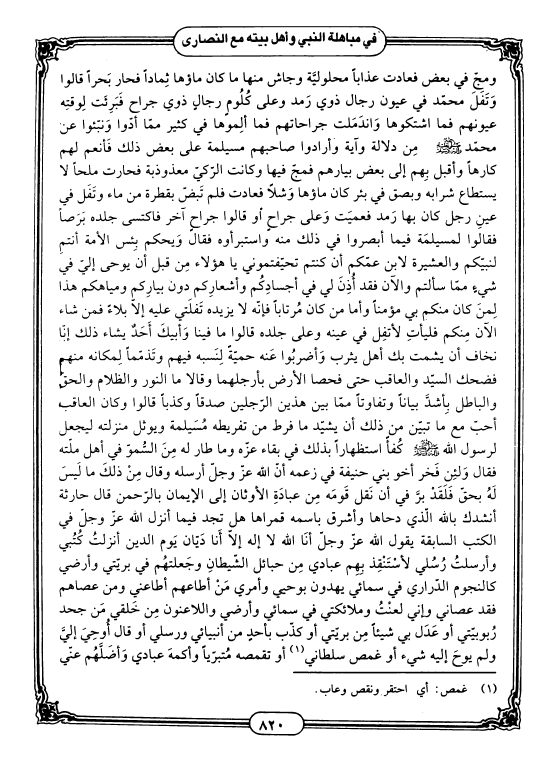 في مباهلة النبي وأهل بيته مع النصارى
ومجّ في بعض فعادت عذاباً محلوليَّة وجاش منها ما كان ماؤها ثِماداً فحار بَحراً قالوا
وَتَفَلَ محمّد في عيون رجال ذوي رَمد وعلى كُلُومِ رجالٍ ذوي جراح فَبَرِئَت لِوقتِه
عيونهم فما اشتكوها وَاندَمَلت جراحاتهم فما ألِموها في كثير ممّا أدّوا وَنبّئوا عن
محمّد ﷺ مِن دلالة وآية وأرادوا صاحبهم مسيلمة على بعض ذلك فَأنعم لهم
كارهاً وأقبل بِهم إلى بعض بيارهم فمجّ فيها وكانت الركيّ معذوذبة فحارت ملحاً لا
يستطاع شرابه وبصق في بئر كان ماؤها وَشلاً فعادت فلم تَبضّ بقطرة من ماء وتَفَل في
عينِ رجل كان بها رَمد فعميَت وَعلى جراحٍ أو قالوا جراح آخر فاكتسى جلده بَرَصاً
فقالوا لمسيلمَة فيما أبصروا في ذلك منه واستبرأوه فقال وَيحكم بِئس الأمة أنتم
لنبيّكم والعشيرة لابن عمّكم أن كنتم تحيّفتموني يا هؤلاء مِن قبل أن يوحى إليّ في
شيءٍ ممّا سألتم والآن فقد أُذِن لي في أجسادِكُم وأشعارِكم دون بيارِكم ومياهكم هذا
لِمنَ كان منكم بي مؤمناً وأما من كان مُرتاباً فإنّه لا يزيده تَفلَتي عليه إلاّ بلاءً فمن شاء
الآن مِنكم فليأتِ لأتفِل في عينه وعلى جلده قالوا ما فينا وَأبيكَ أحَدٌ يشاء ذلك إنّا
نخاف أن يشمت بك أهل يثرب وَأضربُوا عَنه حميّةً لِنَسبه فيهم وتَذمّماً لِمكانه منهم
فضحك السيّد والعاقب حتى فحصا الأرض بأرجلهما وقالا ما النور والظلام والحقّ
والباطل بِأشدَّ بياناً وتفاوتاً ممّا بين هذين الرّجلين صدقاً وكذباً قالوا وكان العاقب
أحبّ مع ما تبيّن من ذلك أن يشيّد ما فرط من تفريطه مُسَيلمة ويوثل منزلته ليجعل
لرسول الله ﷺ كُفاً استظهاراً بذلك في بقاء عزّه وما طار له مِنَ السُّموّ في أهل ملّته
فقال وَلئِن فَخر أخو بني حنيفة في زعمه أنّ الله عزّ وجلّ أرسله وقال مِنْ ذلكَ ما لَيسَ
لَهُ بحقّ فَلَقَدْ برَّ في أن نَقل قَومَه مِن عبادَةِ الأوثان إلى الإيمان بالرّحمن قال حارثة
أنشدك بالله الّذي دحاها وأشرق باسمه قمراها هل تجد فيما أنزل الله عزّ وجلّ في
الكتب السابقة يقول الله عزّ وجلّ أنا الله لا إله إلاّ أنا دَيّان يَوم الدين أنزلتُ كُتُبي
وأرسلتُ رُسُلي لأستَنْقِذ بِهم عبادي مِن حبائل الشّيطان وَجَعلتهُم في بريّتي وأرضي
كالنجوم الدّراري في سمائي يهدون بوحيي وأمري مَنْ أطاعهم أطاعني ومن عصاهم
فقد عصاني وإني لعنْتُ وملائكتي في سمائي وأرضي واللاعنون مِن خَلقي مَن جحد
رُبوبيّتي أو عَدَل بي شيئاً مِن بريّتي أو كذّب بأحدٍ من أنبيائي ورسلي أو قال أُوحِيَ إليَّ
ولم يوحَ إليه شيء أو غمص سلطاني(١) أو تقمصه مُتبرّياً وأكمهَ عبادي وَأضلَّهُم عنّي
(١) غمص: أي احتقر ونقص وعاب.
٨٢٠